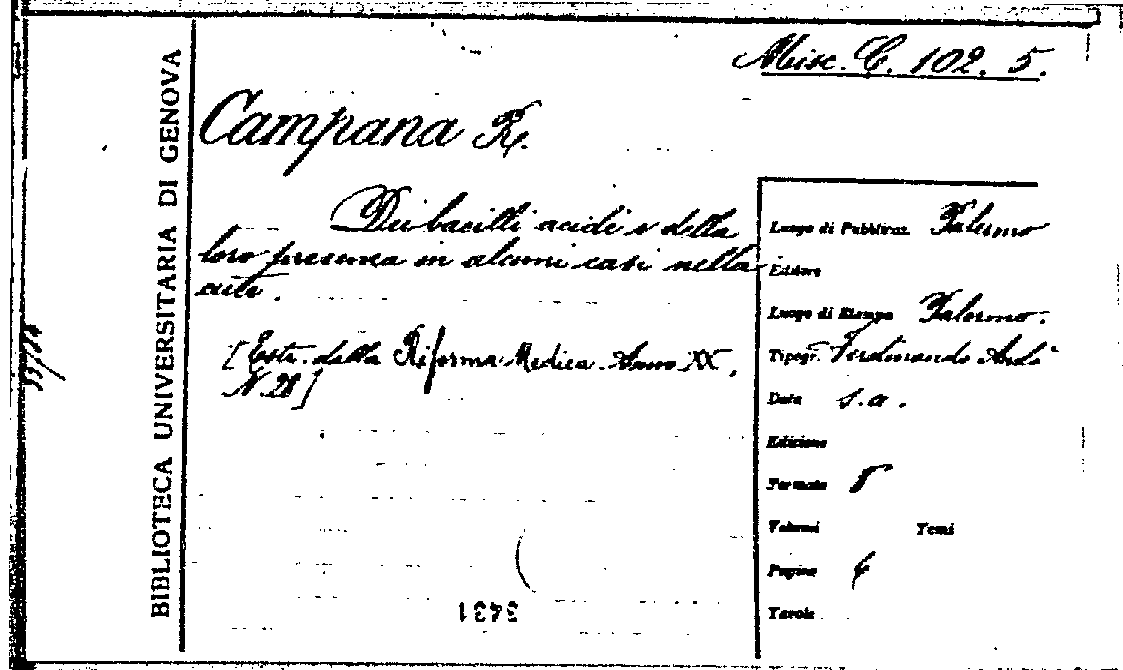 Misc. C. 102. 5.
BIBLIOTECA UNIVERSITARIA DI GENOVA
Campana R.
Dei bacilli acidi e della
loro presenza in alcuni casi nella
cute.
[Estr. della Riforma Medica. Anno XX.
N. 28]
Luogo di Pubblicaz. Palermo
Editore
Luogo di Stampa Palermo.
Tipogr. Ferdinando Andò
Data s. a.
Edizione
Formato 8
Volumi Tomi
Pagine
Tavole
3431